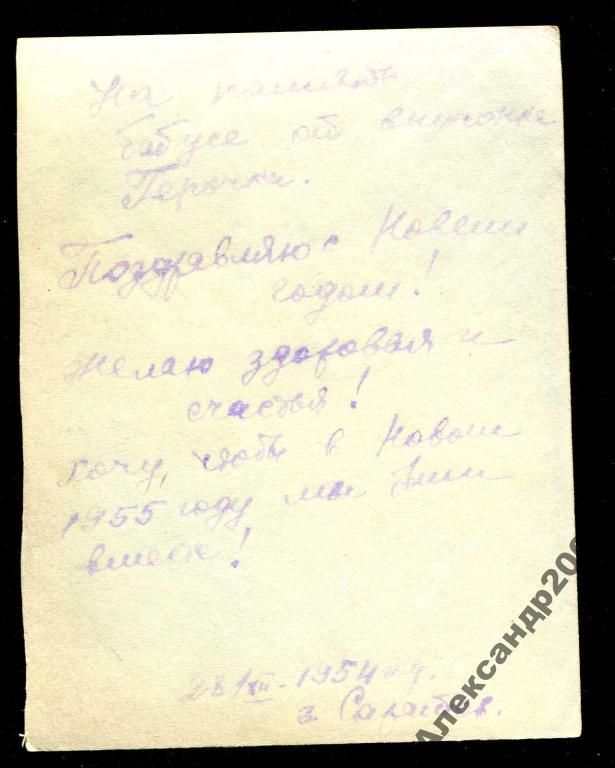 На память
бабусе от внучонка
Герочки.
Поздравляю с Новым
годом!
Желаю здоровья и
счастья!
Хочу, чтобы в Новом
1955 году мы были
вместе!
28/XII-1954 год.
г. Саратов.
Александр20